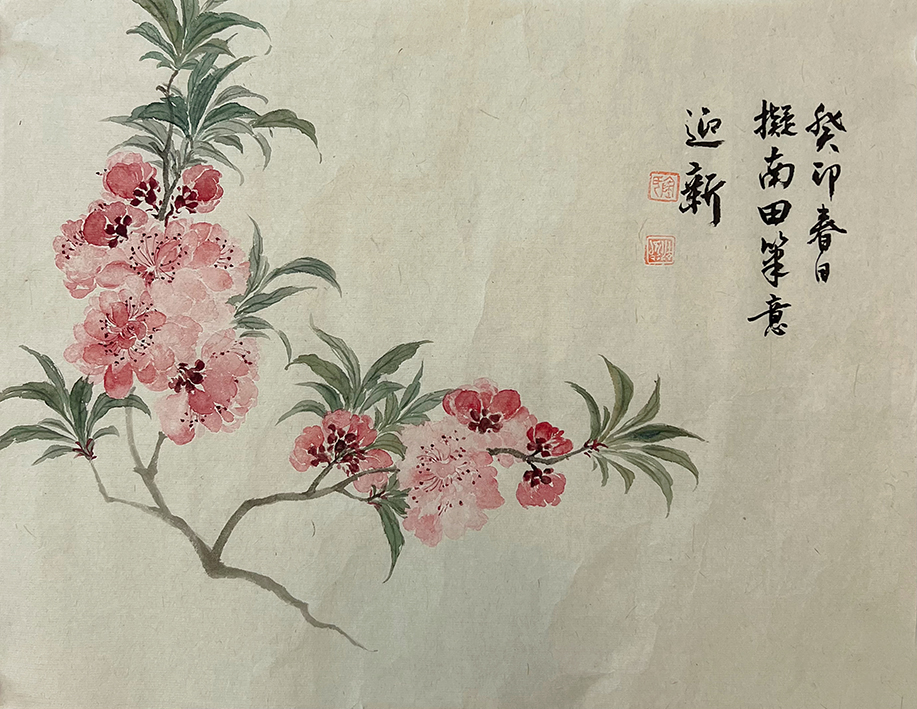 癸卯春日
擬南田筆意
迎新